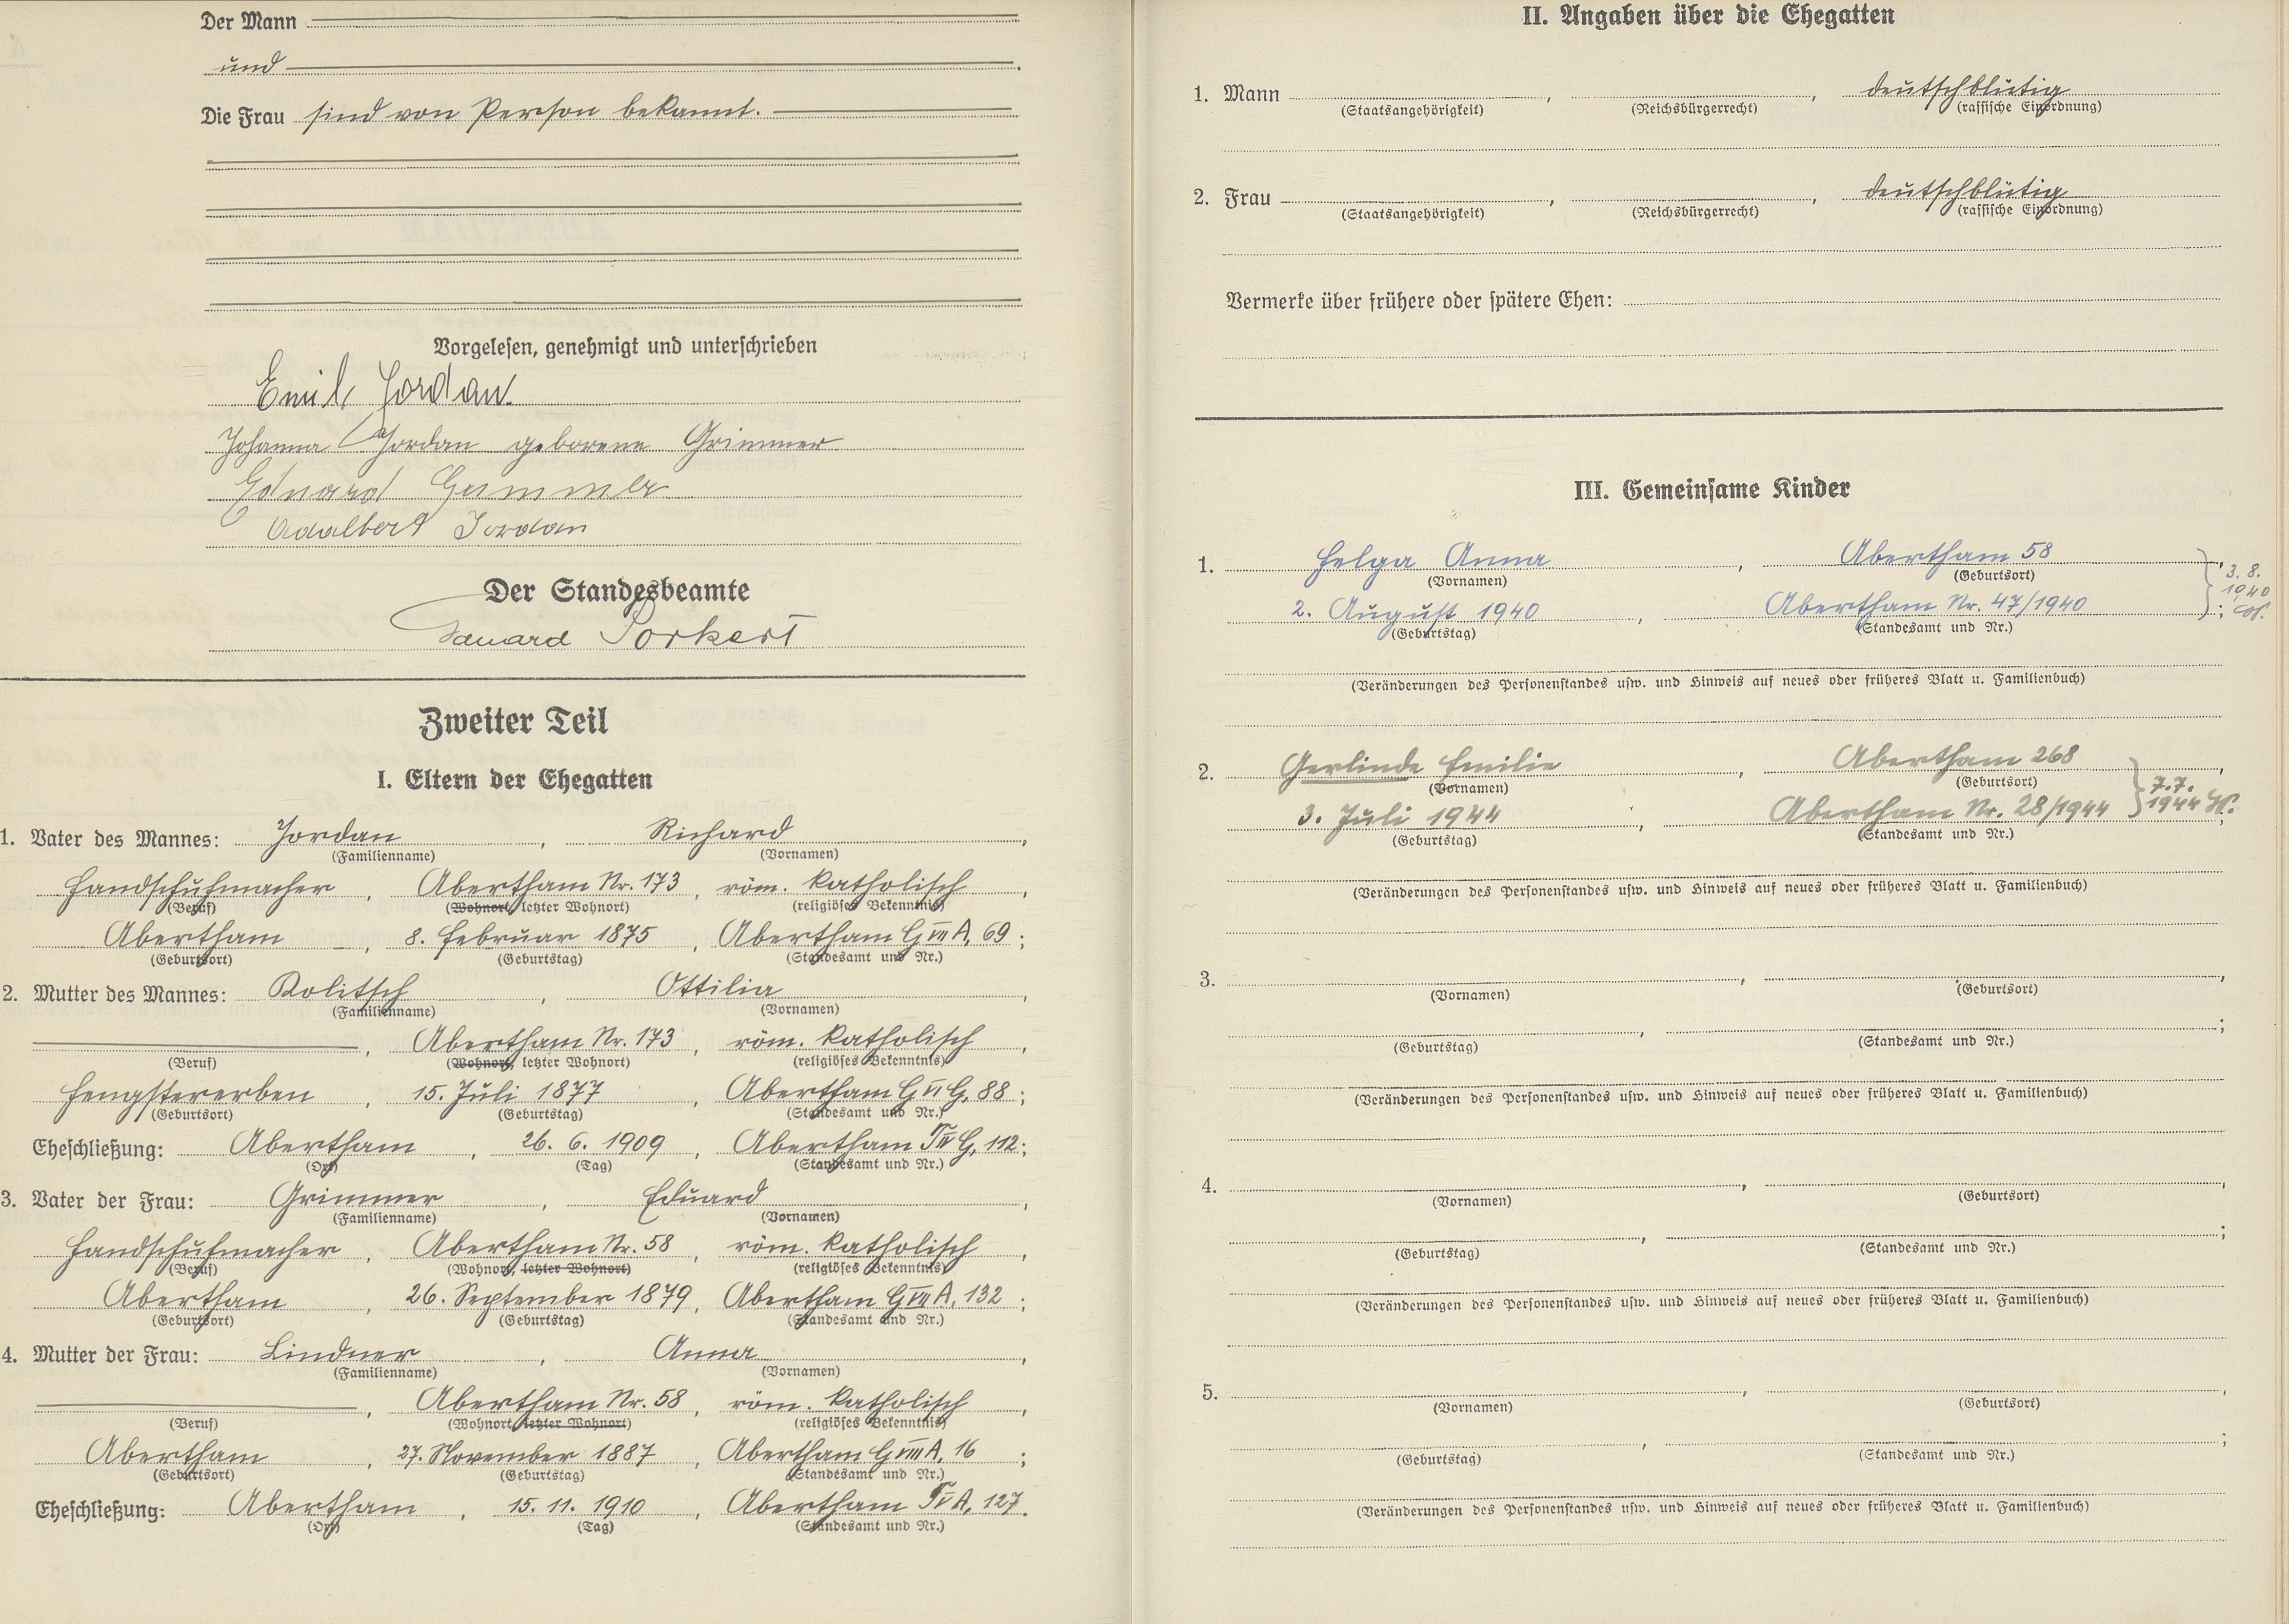 Der Mann
und
Die Frau sind von Person bekannt.
Vorgelesen, genehmigt und unterschrieben
Emil Jordan
Johanna Jordan geborene Grimmer
Eduard Grimmer
Adalbert Jordan
Der Standesbeamte
Eduard Porkert
Zweiter Teil
I. Eltern der Ehegatten
1. Vater des Mannes: Jordan, Richard,
(Familienname) (Vornamen)
Handschuhmacher, Abertham Nr. 173, röm. katholisch,
(Beruf) (Wohnort, letzter Wohnort) (religiöses Bekenntnis)
Abertham, 8. Februar 1875, Abertham G VII A, 69;
(Geburtsort) (Geburtstag) (Standesamt und Nr.)
2. Mutter des Mannes: Kolitsch, Ottilia,
(Familienname) (Vornamen)
, Abertham Nr. 173, röm. katholisch,
(Beruf) (Wohnort, letzter Wohnort) (religiöses Bekenntnis)
Hengstererben, 15. Juli 1877, Abertham G VI G, 88;
(Geburtsort) (Geburtstag) (Standesamt und Nr.)
Eheschließung: Abertham, 26. 6. 1909, Abertham T IV G, 112;
(Ort) (Tag) (Standesamt und Nr.)
3. Vater der Frau: Grimmer, Eduard,
(Familienname) (Vornamen)
Handschuhmacher, Abertham Nr. 58, röm. katholisch,
(Beruf) (Wohnort, letzter Wohnort) (religiöses Bekenntnis)
Abertham, 26. September 1879, Abertham G VII A, 132;
(Geburtsort) (Geburtstag) (Standesamt und Nr.)
4. Mutter der Frau: Lindner, Anna,
(Familienname) (Vornamen)
, Abertham Nr. 58, röm. katholisch,
(Beruf) (Wohnort, letzter Wohnort) (religiöses Bekenntnis)
Abertham, 27. November 1887, Abertham G VIII A, 16;
(Geburtsort) (Geburtstag) (Standesamt und Nr.)
Eheschließung: Abertham, 15. 11. 1910, Abertham T V A, 127.
(Ort) (Tag) (Standesamt und Nr.)
II. Angaben über die Ehegatten
1. Mann , , deutschblütig
(Staatsangehörigkeit) (Reichsbürgerrecht) (rassische Einordnung)
2. Frau , , deutschblütig
(Staatsangehörigkeit) (Reichsbürgerrecht) (rassische Einordnung)
Vermerke über frühere oder spätere Ehen:
III. Gemeinsame Kinder
1. Helga Anna, Abertham 58,
(Vornamen) (Geburtsort)
2. August 1940, Abertham Nr. 47/1940;
(Geburtstag) (Standesamt und Nr.)
3. 8.
1940
(Veränderungen des Personenstandes usw. und Hinweis auf neues oder früheres Blatt u. Familienbuch)
2. Gerlinde Emilie, Abertham 268,
(Vornamen) (Geburtsort)
3. Juli 1944, Abertham Nr. 28/1944;
(Geburtstag) (Standesamt und Nr.)
7. 7.
1944
(Veränderungen des Personenstandes usw. und Hinweis auf neues oder früheres Blatt u. Familienbuch)
3. , ,
(Vornamen) (Geburtsort)
, ;
(Geburtstag) (Standesamt und Nr.)
(Veränderungen des Personenstandes usw. und Hinweis auf neues oder früheres Blatt u. Familienbuch)
4. , ,
(Vornamen) (Geburtsort)
, ;
(Geburtstag) (Standesamt und Nr.)
(Veränderungen des Personenstandes usw. und Hinweis auf neues oder früheres Blatt u. Familienbuch)
5. , ,
(Vornamen) (Geburtsort)
, ;
(Geburtstag) (Standesamt und Nr.)
(Veränderungen des Personenstandes usw. und Hinweis auf neues oder früheres Blatt u. Familienbuch)